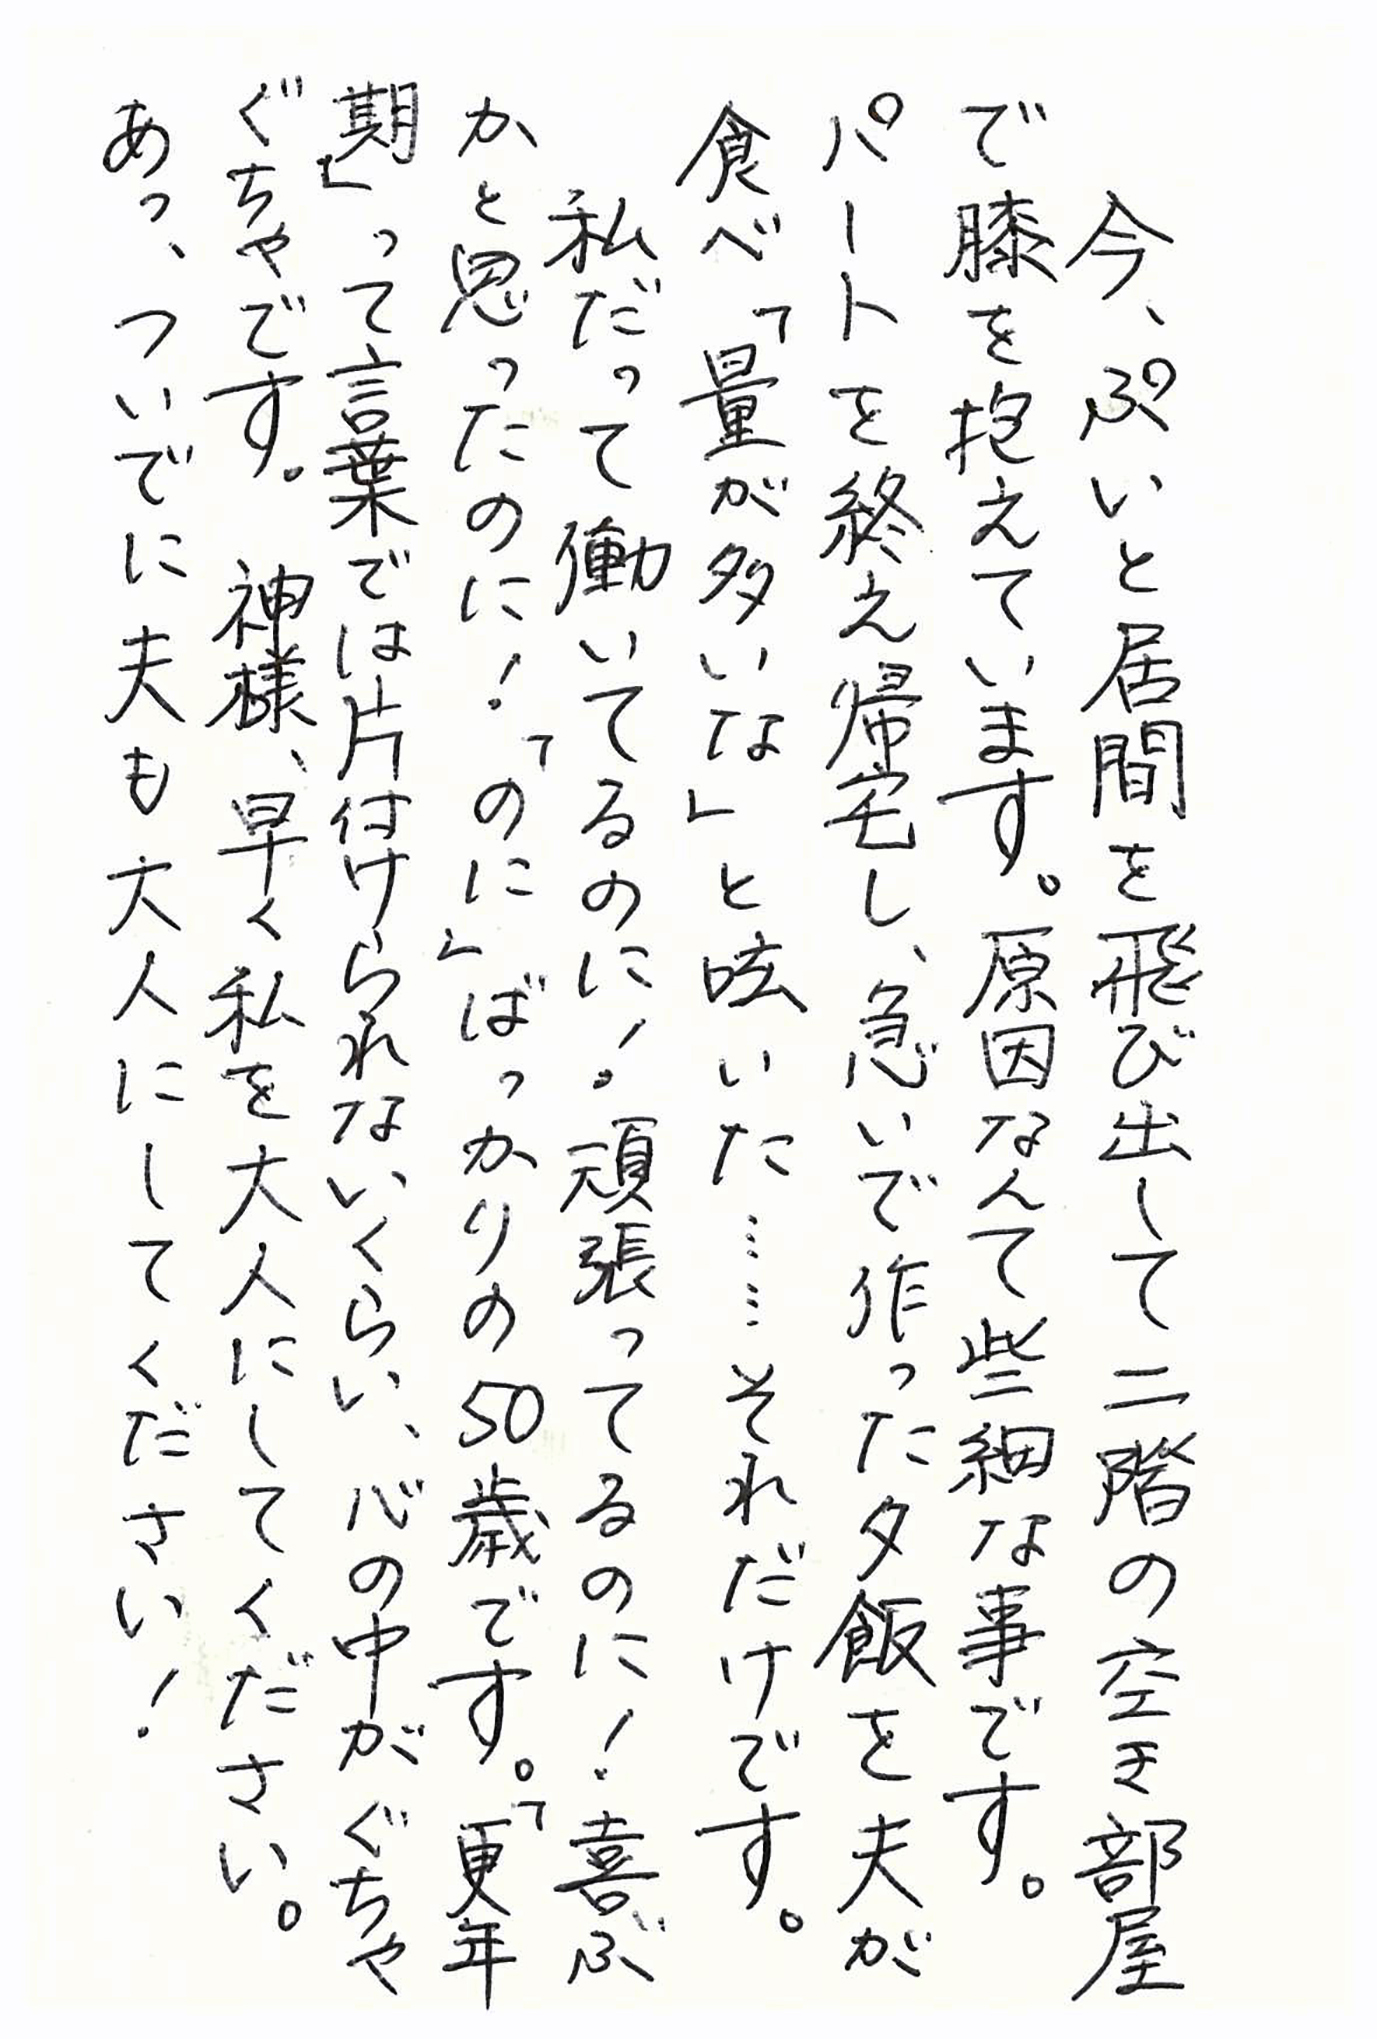 今、ぷいと居間を飛び出して二階の空き部屋
で膝を抱えています。原因なんて些細な事です。
パートを終え帰宅し、急いで作った夕飯を夫が
食べ「量が多いな」と呟いた……それだけです。
私だって働いてるのに！頑張ってるのに！喜ぶ
かと思ったのに！「のに」ばっかりの50歳です。「更年
期」って言葉では片付けられないくらい、心の中がぐちゃ
ぐちゃです。神様、早く私を大人にしてください。
あっ、ついでに夫も大人にしてください！